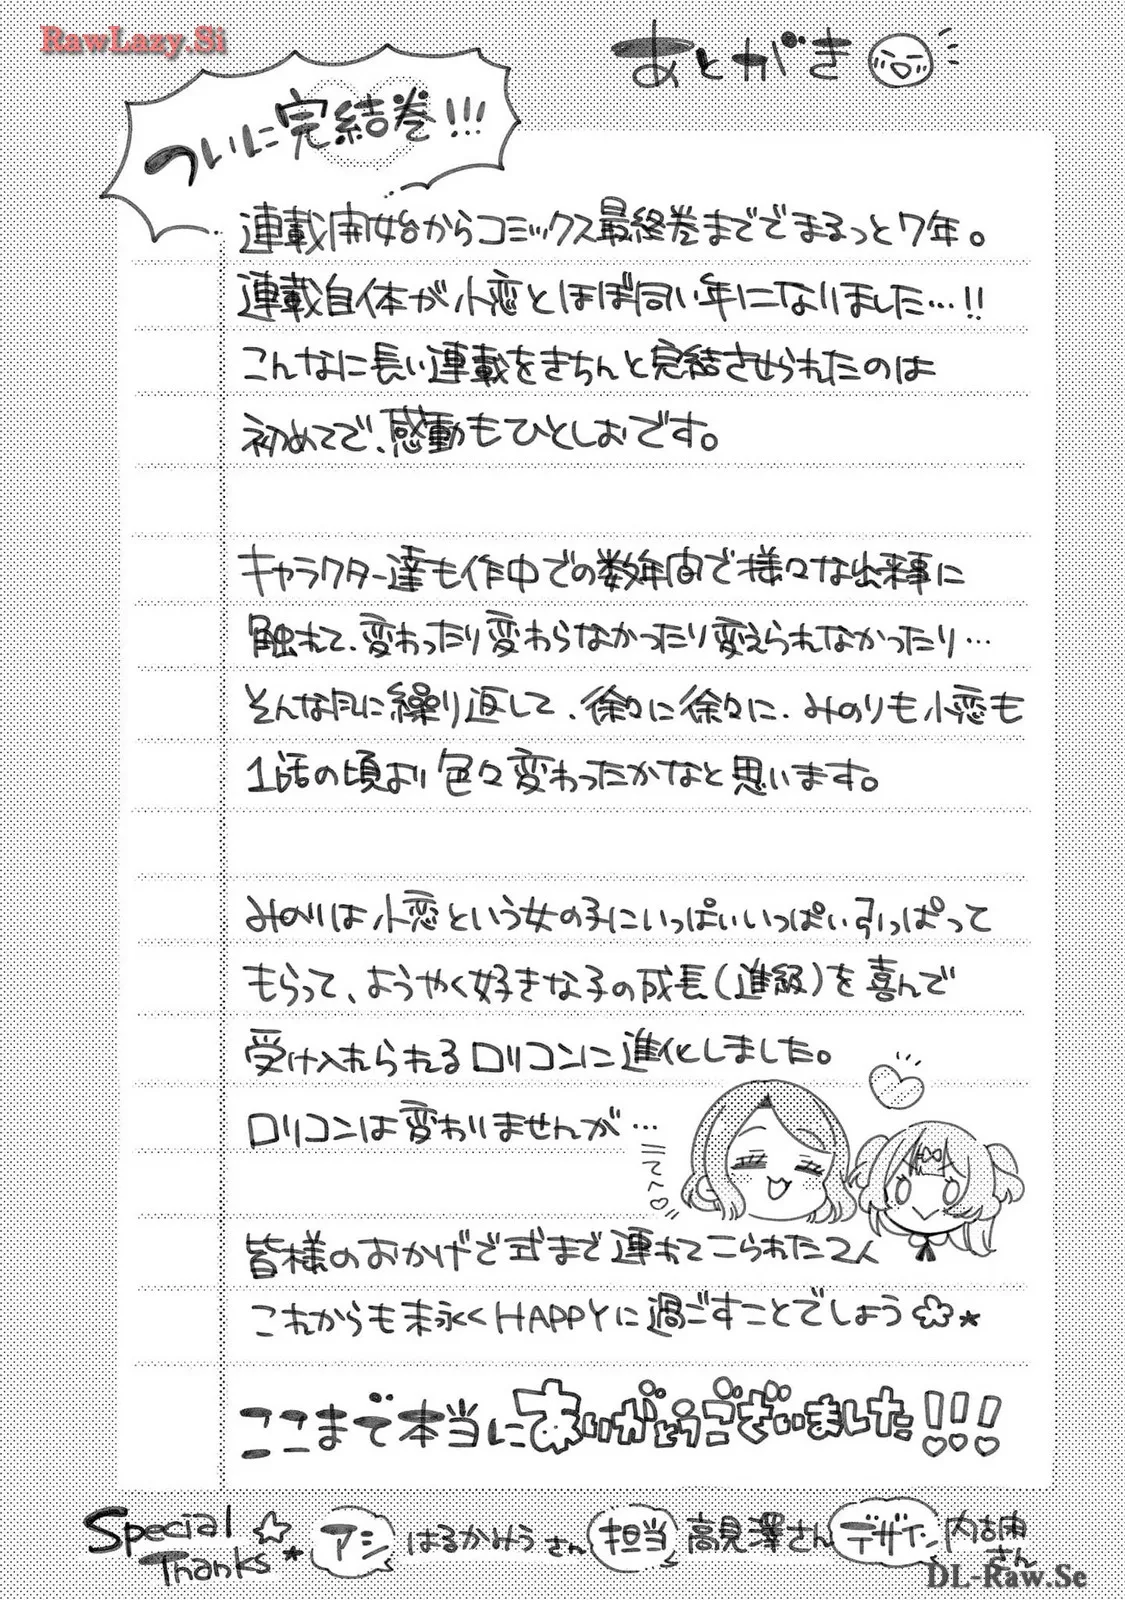 RawLazy.Si
あとがき
ついに完結巻!!!
連載開始からコミックス最終巻まででまるっと7年。
連載自体が小恋とほぼ同い年になりました…!!
こんなに長い連載をきちんと完結させられたのは
初めてで、感動もひとしおです。
キャラクター達も作中での数年間で様々な出来事に
触れて、変わったり変わらなかったり変えられなかったり…
そんな風に繰り返して、徐々に徐々に、みのりも小恋も
1話の頃より色々変わったかなと思います。
みのりは小恋という女の子にいっぱいいっぱい引っぱって
もらって、ようやく好きな子の成長(進級)を喜んで
受け入れられるロリコンに進化しました。
ロリコンは変わりませんが…
てへ♡
皆様のおかげで式まで連れてこられた2人
これからも末永くHAPPYに過ごすことでしょう
ここまで本当にありがとうございました!!!
Special Thanks
アシ はるかみうさん 担当 高見澤さん デザイン 内古
さん
DL-Raw.Se